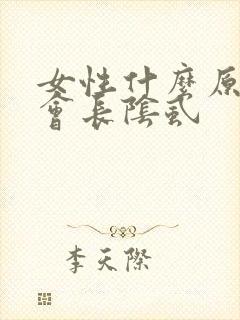 女性什麼原
會長陰虱
李天際